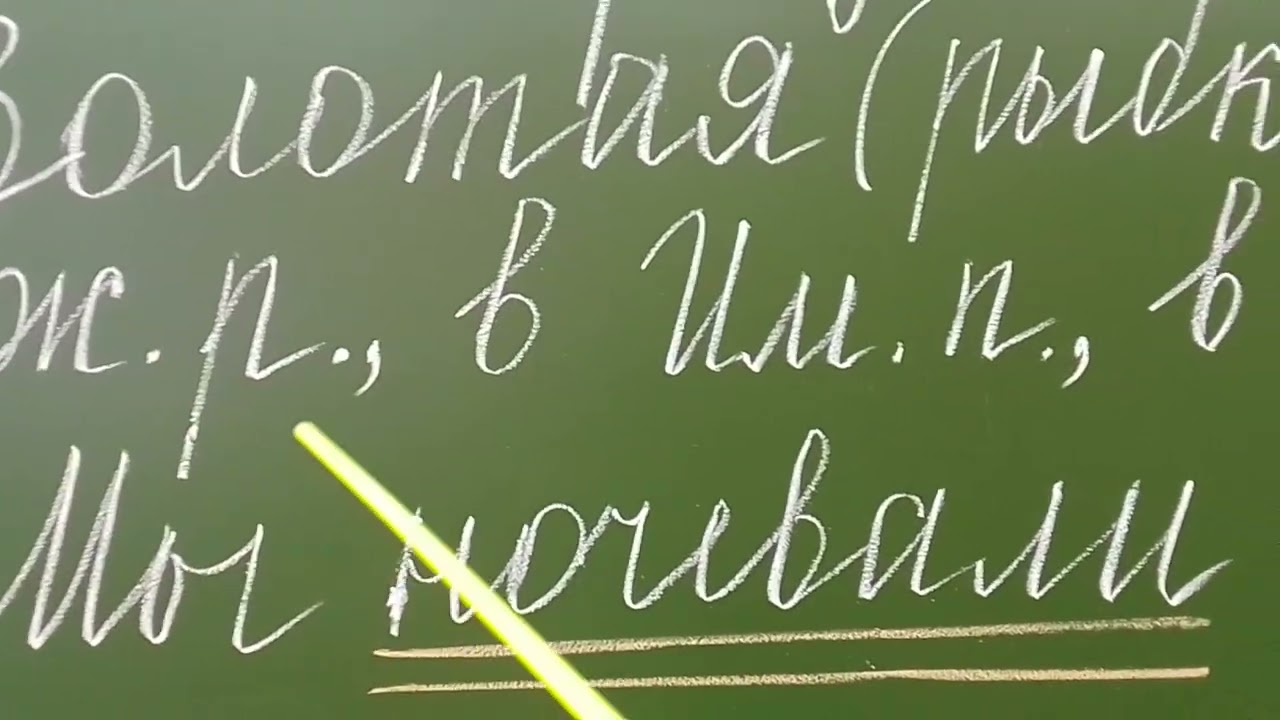 Золотая (рыбк
ж. р., в Им. п., в
Мы ночевали